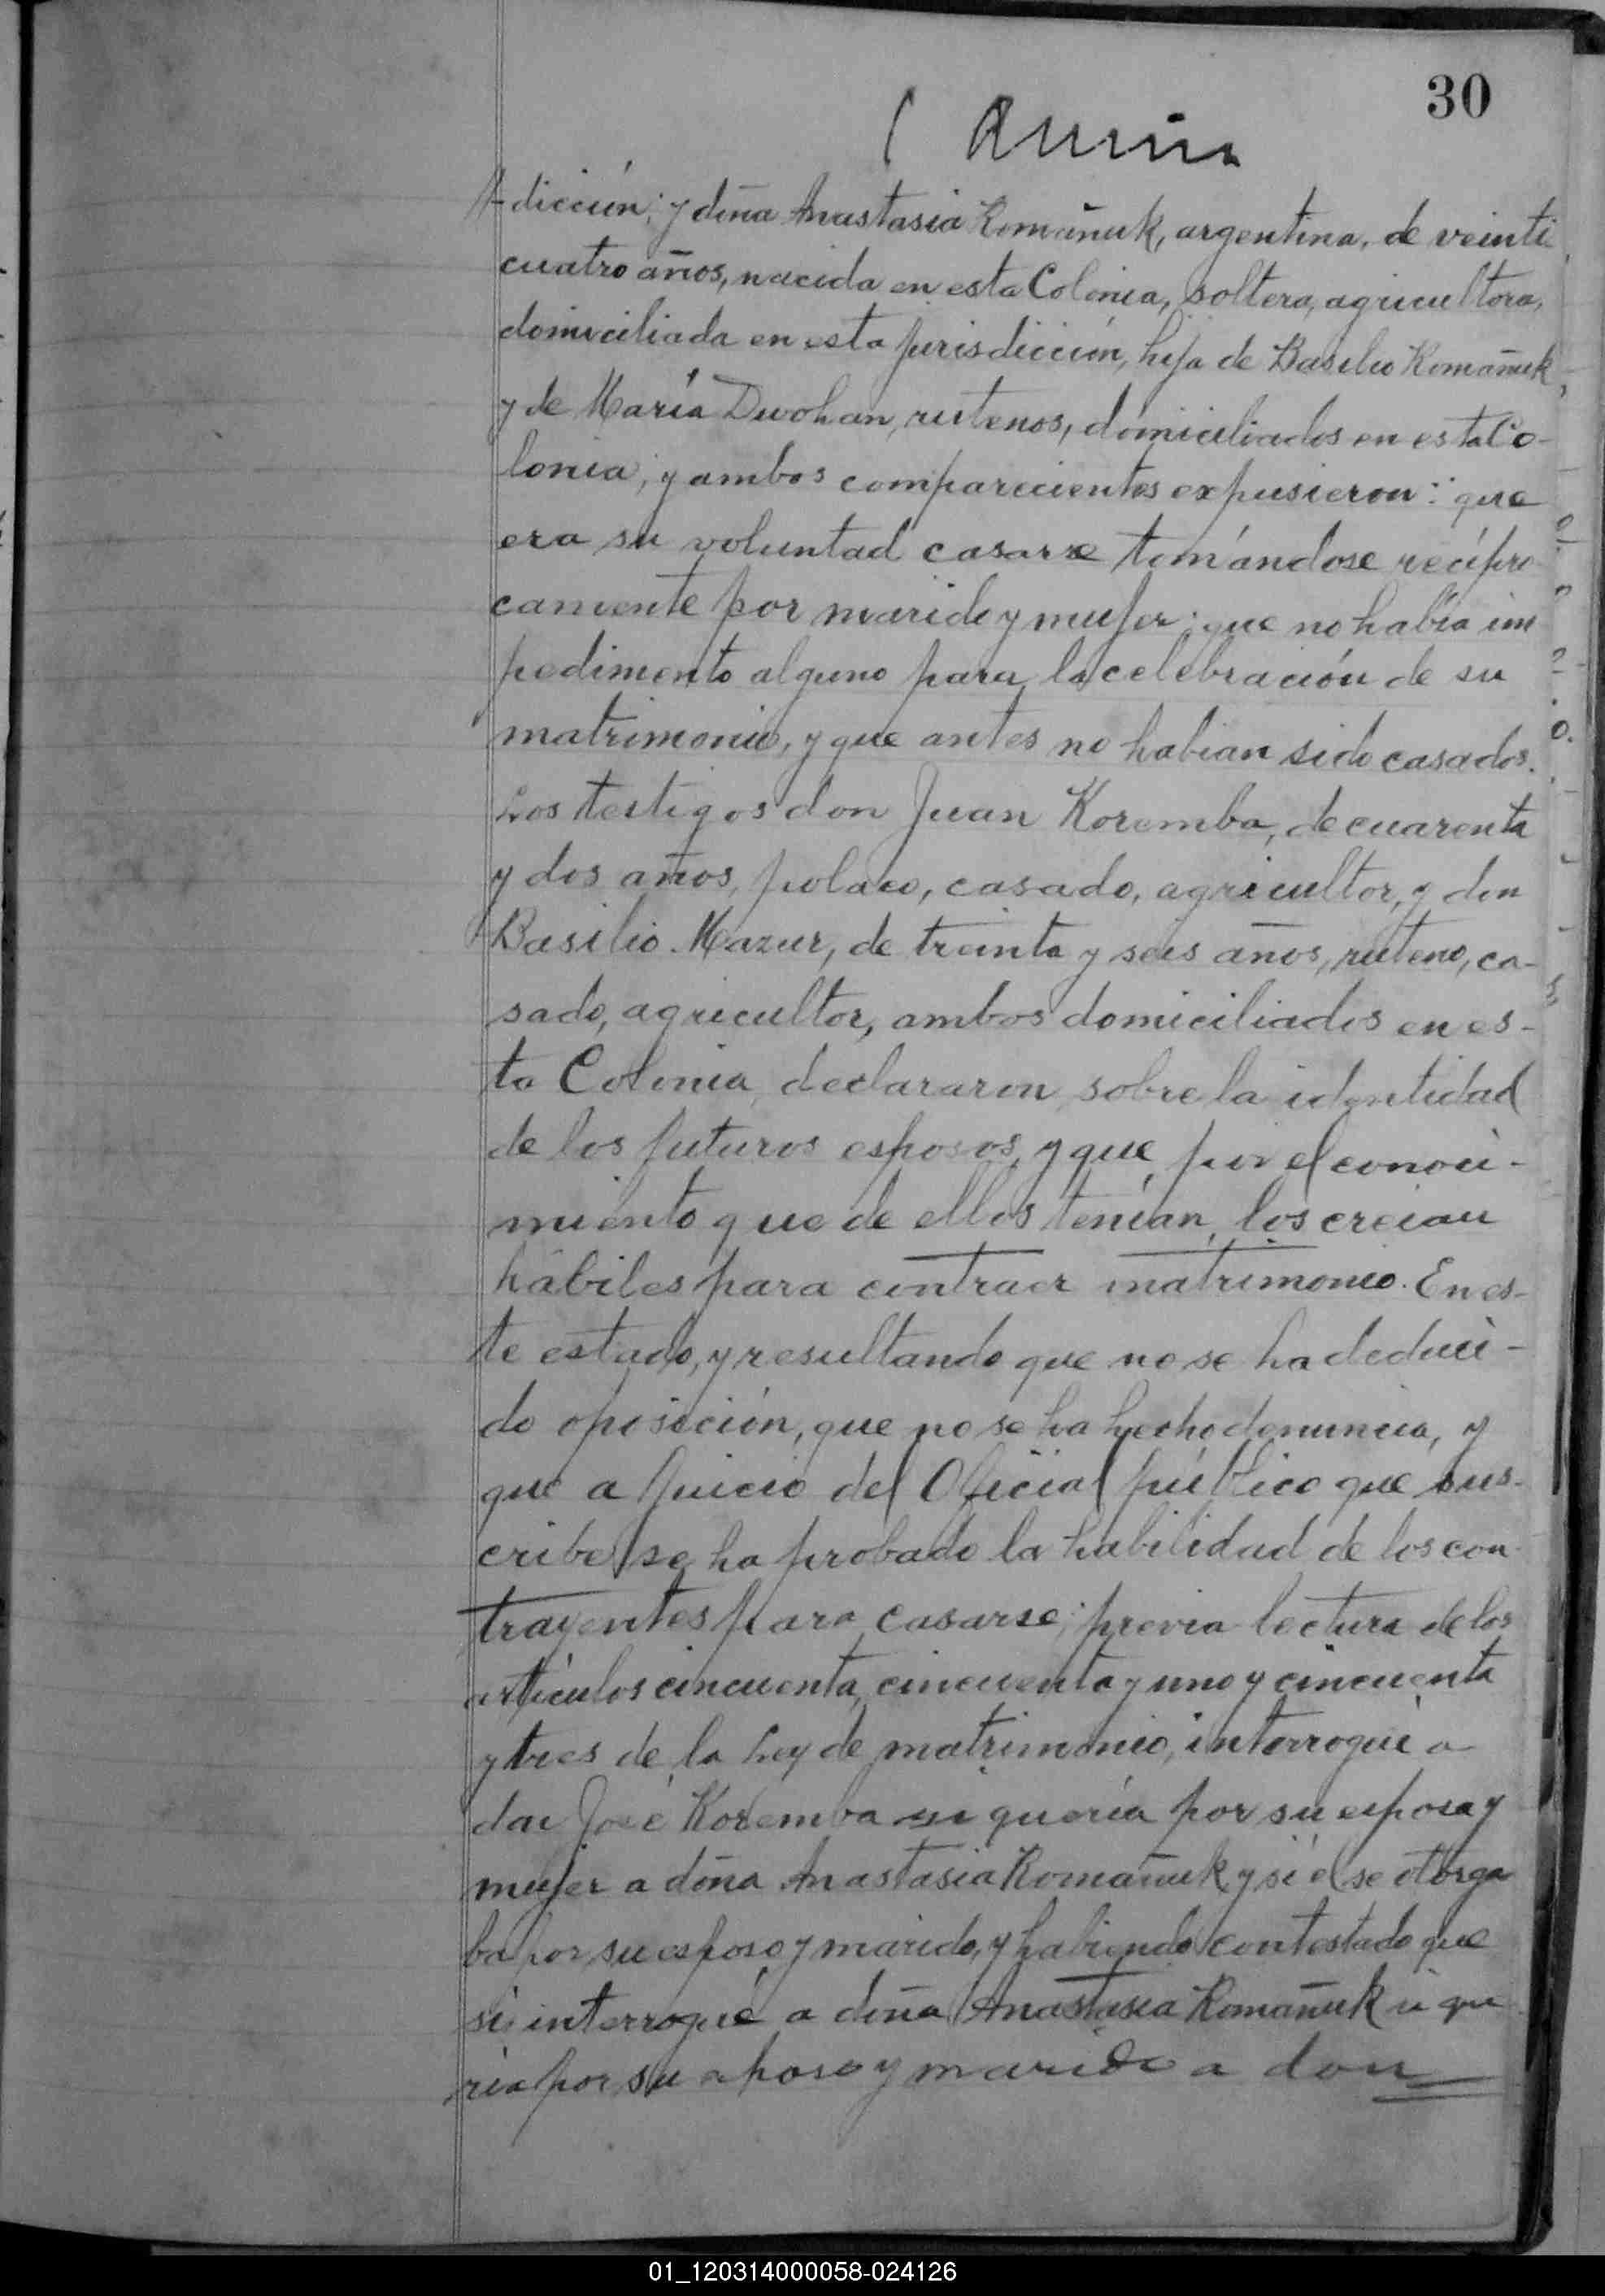 30
dicción; y doña Anastasia Romañuk, argentina, de veinti
cuatro años, nacida en esta Colonia, soltera, agricultora,
domiciliada en esta jurisdicción, hija de Basilio Romañuk,
y de María Dwohan, rutenos, domiciliados en esta Co-
lonia; y ambos comparecientes expusieron: que
era su voluntad casarse tomándose recípro
camente por marido y mujer; que no había im
pedimento alguno para la celebración de su
matrimonio, y que antes no habian sido casados.
Los testigos don Juan Koremba, de cuarenta
y dos años, polaco, casado, agricultor, y don
Basilio Mazur, de treinta y seis años, ruteno, ca-
sado, agricultor, ambos domiciliados en es-
ta Colonia, declararon sobre la identidad
de los futuros esposos, y que, por el conoci-
miento que de ellos tenían, los creian
hábiles para contraer matrimonio. En es-
te estado, y resultando que no se ha deduci-
do oposición, que no se ha hecho denuncia, y
que a juicio del Oficial público que sus-
cribe se ha probado la habilidad de los con-
trayentes para casarse; previa lectura de los
artículos cincuenta, cincuenta y uno y cincuenta
y tres de la Ley de matrimonio, interrogué a
don José Koremba si quería por su esposa y
mujer a doña Anastasia Romañuk y si él se otorga
ba por su esposo y marido, y habiendo contestado que
sí, interrogué a doña Anastasia Romañuk si que
ría por su esposo y marido a don
01_120314000058-024126